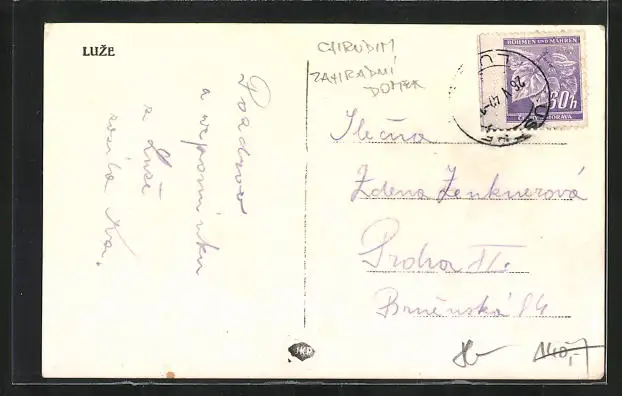 LUŽE
Pozdrav
a vzpomínku
z Luže
CHRUDIM
ZAHRADNÍ
DOMEK
BÖHMEN UND MÄHREN
60 h
ČECHY A MORAVA
Slečna
Zdena Zenknerová
Praha II.
Brněnská 84
140,-